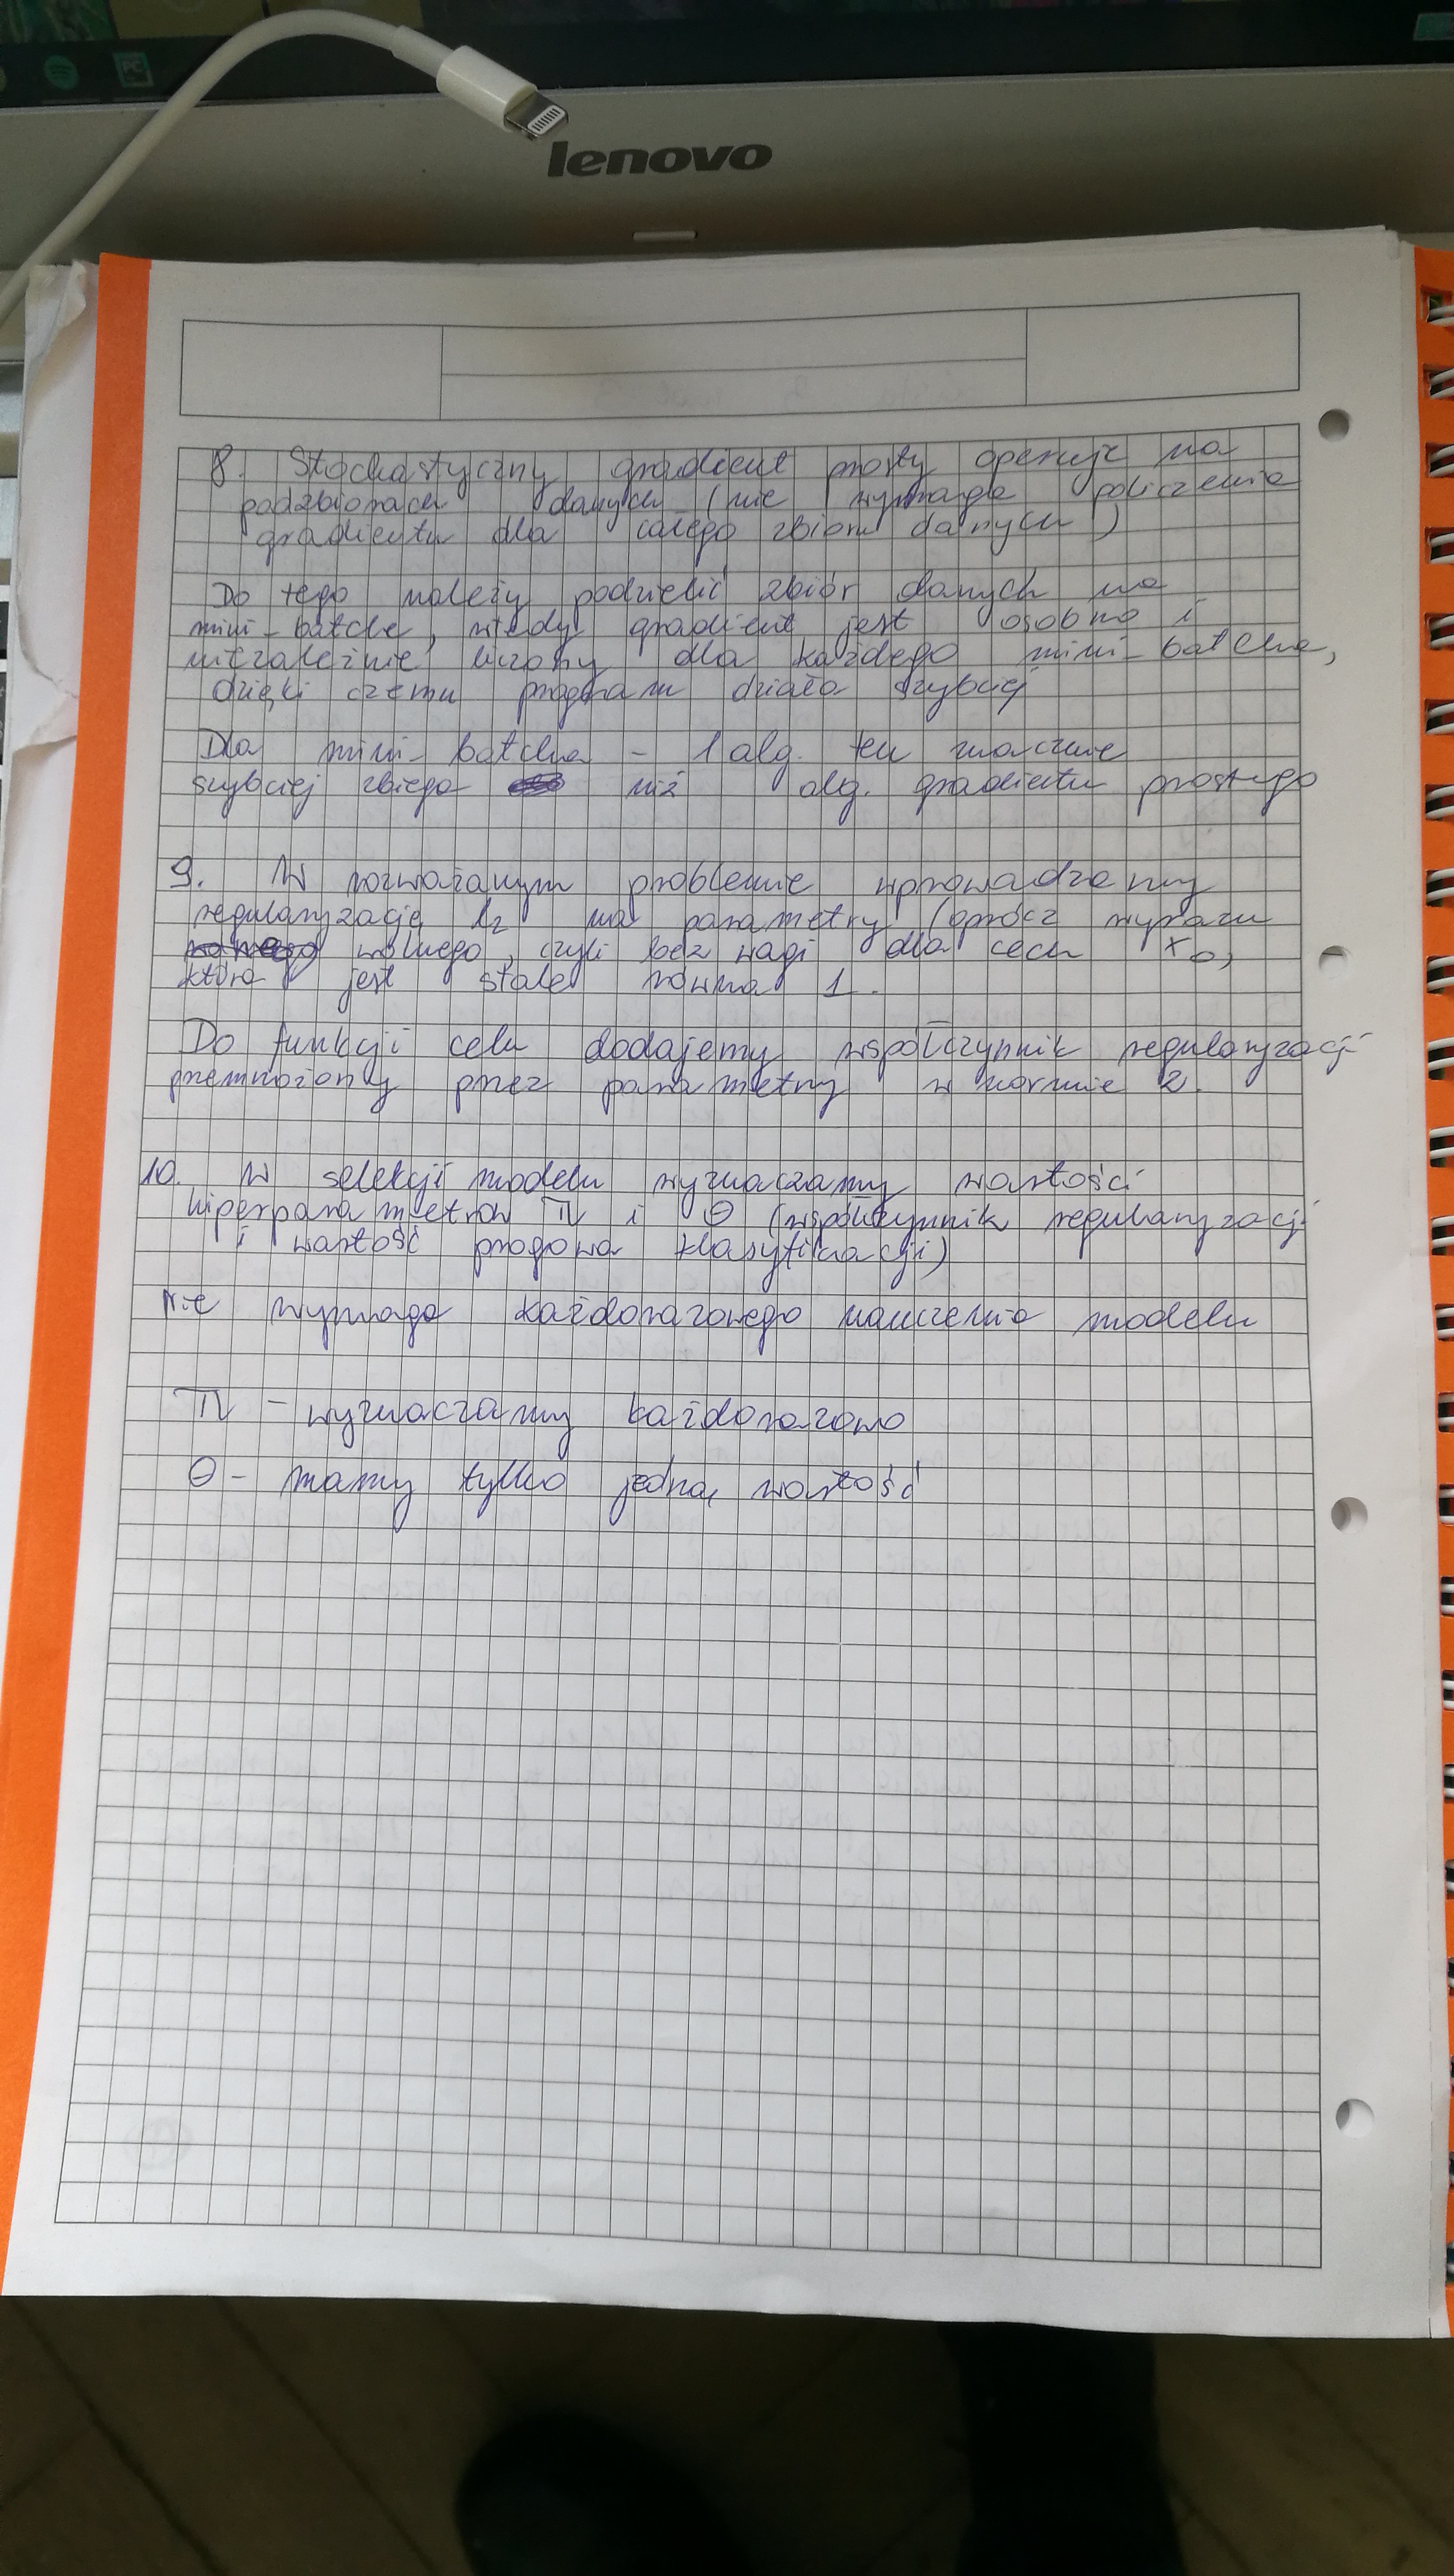 PC
lenovo
8. Stochastyczny gradient prosty operuje na
podzbiorach danych (nie wymaga policzenia
gradientu dla całego zbioru danych)
Do tego należy podzielić zbiór danych na
mini-batche, wtedy gradient jest osobno i
niezależnie liczony dla każdego mini-batcha,
dzięki czemu program działa szybciej
Dla mini-batcha - 1 alg. ten znacznie
szybciej zbiega niż alg. gradientu prostego
9. W rozważanym problemie wprowadzamy
regularyzację l2 na parametry (oprócz wyrazu
wolnego, czyli bez wagi dla cech x0,
która jest stale równa 1.
Do funkcji celu dodajemy współczynnik regularyzacji
przemnożony przez parametry w normie 2.
10. W selekcji modelu wyznaczamy wartości
hiperparametrów π i Θ (współczynnik regularyzacji
i wartość progowa klasyfikacji)
Nie wymaga każdorazowego nauczenia modelu
π - wyznaczamy każdorazowo
Θ - mamy tylko jedną wartość